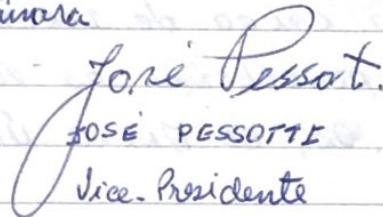 José Pessot.
JOSÉ PESSOTTI
Vice-Presidente